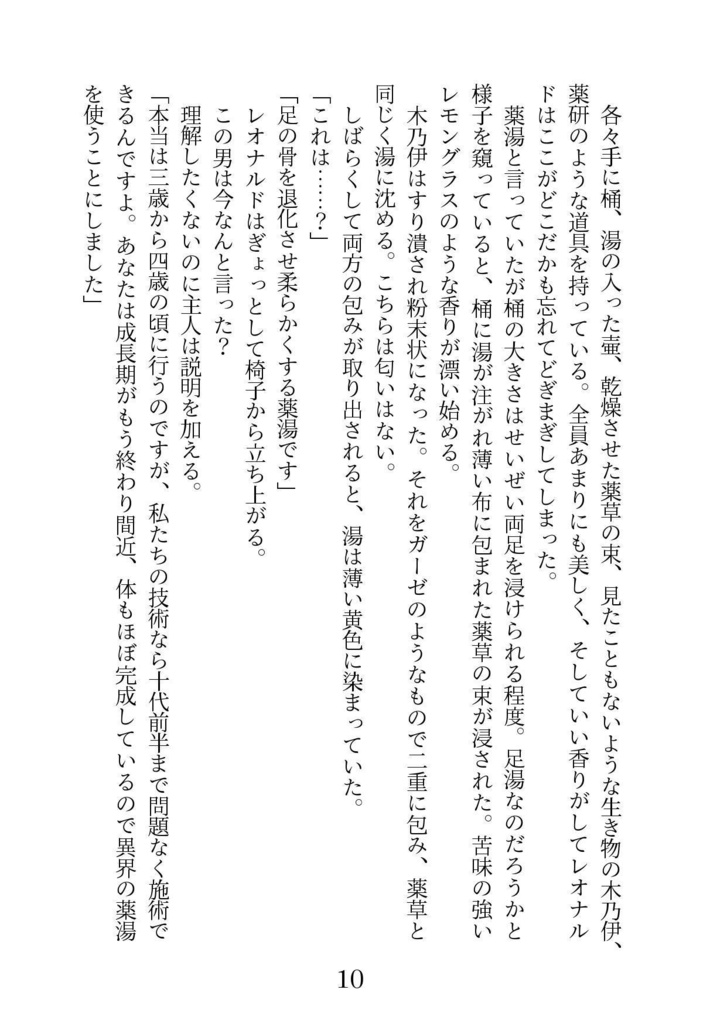 各々手に桶、湯の入った壷、乾燥させた薬草の束、見たこともないような生き物の木乃伊、
薬研のような道具を持っている。全員あまりにも美しく、そしていい香りがしてレオナル
ドはここがどこだかも忘れてどぎまぎしてしまった。
薬湯と言っていたが桶の大きさはせいぜい両足を浸けられる程度。足湯なのだろうかと
様子を窺っていると、桶に湯が注がれ薄い布に包まれた薬草の束が浸された。苦味の強い
レモングラスのような香りが漂い始める。
木乃伊はすり潰され粉末状になった。それをガーゼのようなもので二重に包み、薬草と
同じく湯に沈める。こちらは匂いはない。
しばらくして両方の包みが取り出されると、湯は薄い黄色に染まっていた。
「これは……？」
「足の骨を退化させ柔らかくする薬湯です」
レオナルドはぎょっとして椅子から立ち上がる。
この男は今なんと言った？
理解したくないのに主人は説明を加える。
「本当は三歳から四歳の頃に行うのですが、私たちの技術なら十代前半まで問題なく施術で
きるんですよ。あなたは成長期がもう終わり間近、体もほぼ完成しているので異界の薬湯
を使うことにしました」
10